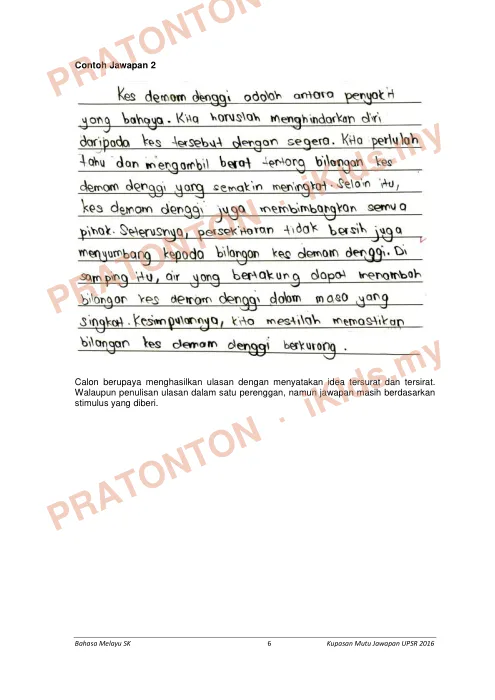 Contoh Jawapan 2
Kes demam denggi adalah antara penyakit
yang bahaya. Kita haruslah menghindarkan diri
daripada kes tersebut dengan segera. Kita perlulah
tahu dan mengambil berat tentang bilangan kes
demam denggi yang semakin meningkat. Selain itu,
kes demam denggi juga membimbangkan semua
pihak. Seterusnya, persekitaran tidak bersih juga
menyumbang kepada bilangan kes demam denggi. Di
samping itu, air yang bertakung dapat menambah
bilangan kes demam denggi dalam masa yang
singkat. Kesimpulannya, kita mestilah memastikan
bilangan kes demam denggi berkurang.
Calon berupaya menghasilkan ulasan dengan menyatakan idea tersurat dan tersirat.
Walaupun penulisan ulasan dalam satu perenggan, namun jawapan masih berdasarkan
stimulus yang diberi.
PRATONTON
PRATONTON · iKids.my
PRATONTON · iKids.my
Bahasa Melayu SK 6 Kupasan Mutu Jawapan UPSR 2016